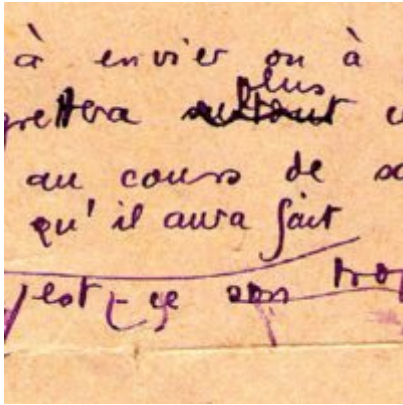 à envier ou à
plus
grettera surtout
au cours de sa
qu'il aura fait
est-ce son trop